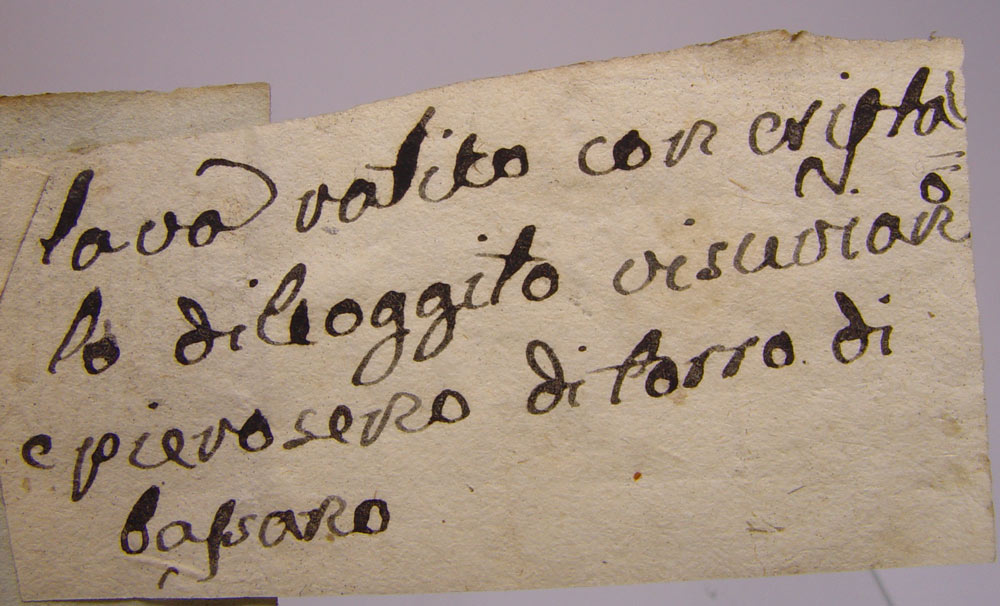 lava vatito con cristal
lo di leoggito visuvian
o
e pierosero di torro di
bassano